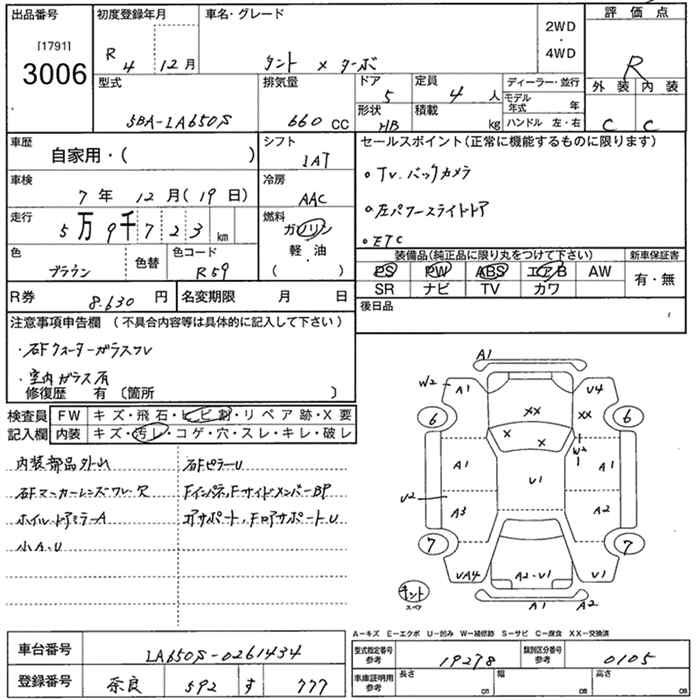 出品番号 初度登録年月 車名・グレード 評価点
[1791] 3006 R 4 12月 タント X ターボ 2WD ・ 4WD R
型式 排気量 ドア 定員 ディーラー・並行 外装 内装
5BA-LA650S 660 CC 5 4 人 モデル年式 年
形状 積載 ハンドル 左・右 C C
HB kg
車歴 自家用・( ) シフト セールスポイント(正常に機能するものに限ります)
1AT
車検 7年 12月(19日) 冷房 AAC 。TV. バックカメラ
走行 5万9千723km 燃料 ガソリン 。左パワースライドドア
軽・油 。ETC
色 色替 色コード ・ 装備品(純正品に限り丸をつけて下さい) 新車保証書
ブラウン R59 ( ) PS PW ABS エアB AW 有・無
R券 8.630 円 名変期限 月 日 SR ナビ TV カワ
注意事項申告欄(不具合内容等は具体的に記入して下さい) 後日品
・右Fクォーターガラスワレ
・室内ガラス有
修復歴 有 〔箇所 〕
検査員 FW キズ・飛石・ヒビ割・リペア跡・X要
記入欄 内装 キズ・汚レ・コゲ・穴・スレ・キレ・破レ
内装部品外れ 右FピラーU
右Fマーカーレンズワレ欠 Fインパネ,FサイドメンバーBP
ホイルドアミラーA コアサポート,FロアサポートU
小A.U
A1
W2 A1 U4
6 XX XX 6
X X W2
A1 A1
U1
U2 A3 A2
7 7
UA4 A2-U1 U1
キント スペア A1 A2
A-キズ E-エクボ U-凹み W-補修跡 S-サビ C-腐食 XX-交換済
車台番号 LA650S-0261434 型式指定番号 参考 19278 類別区分番号 参考 0105
登録番号 奈良 592 す 777 車庫証明用 参考 長さ cm 幅 cm 高さ cm